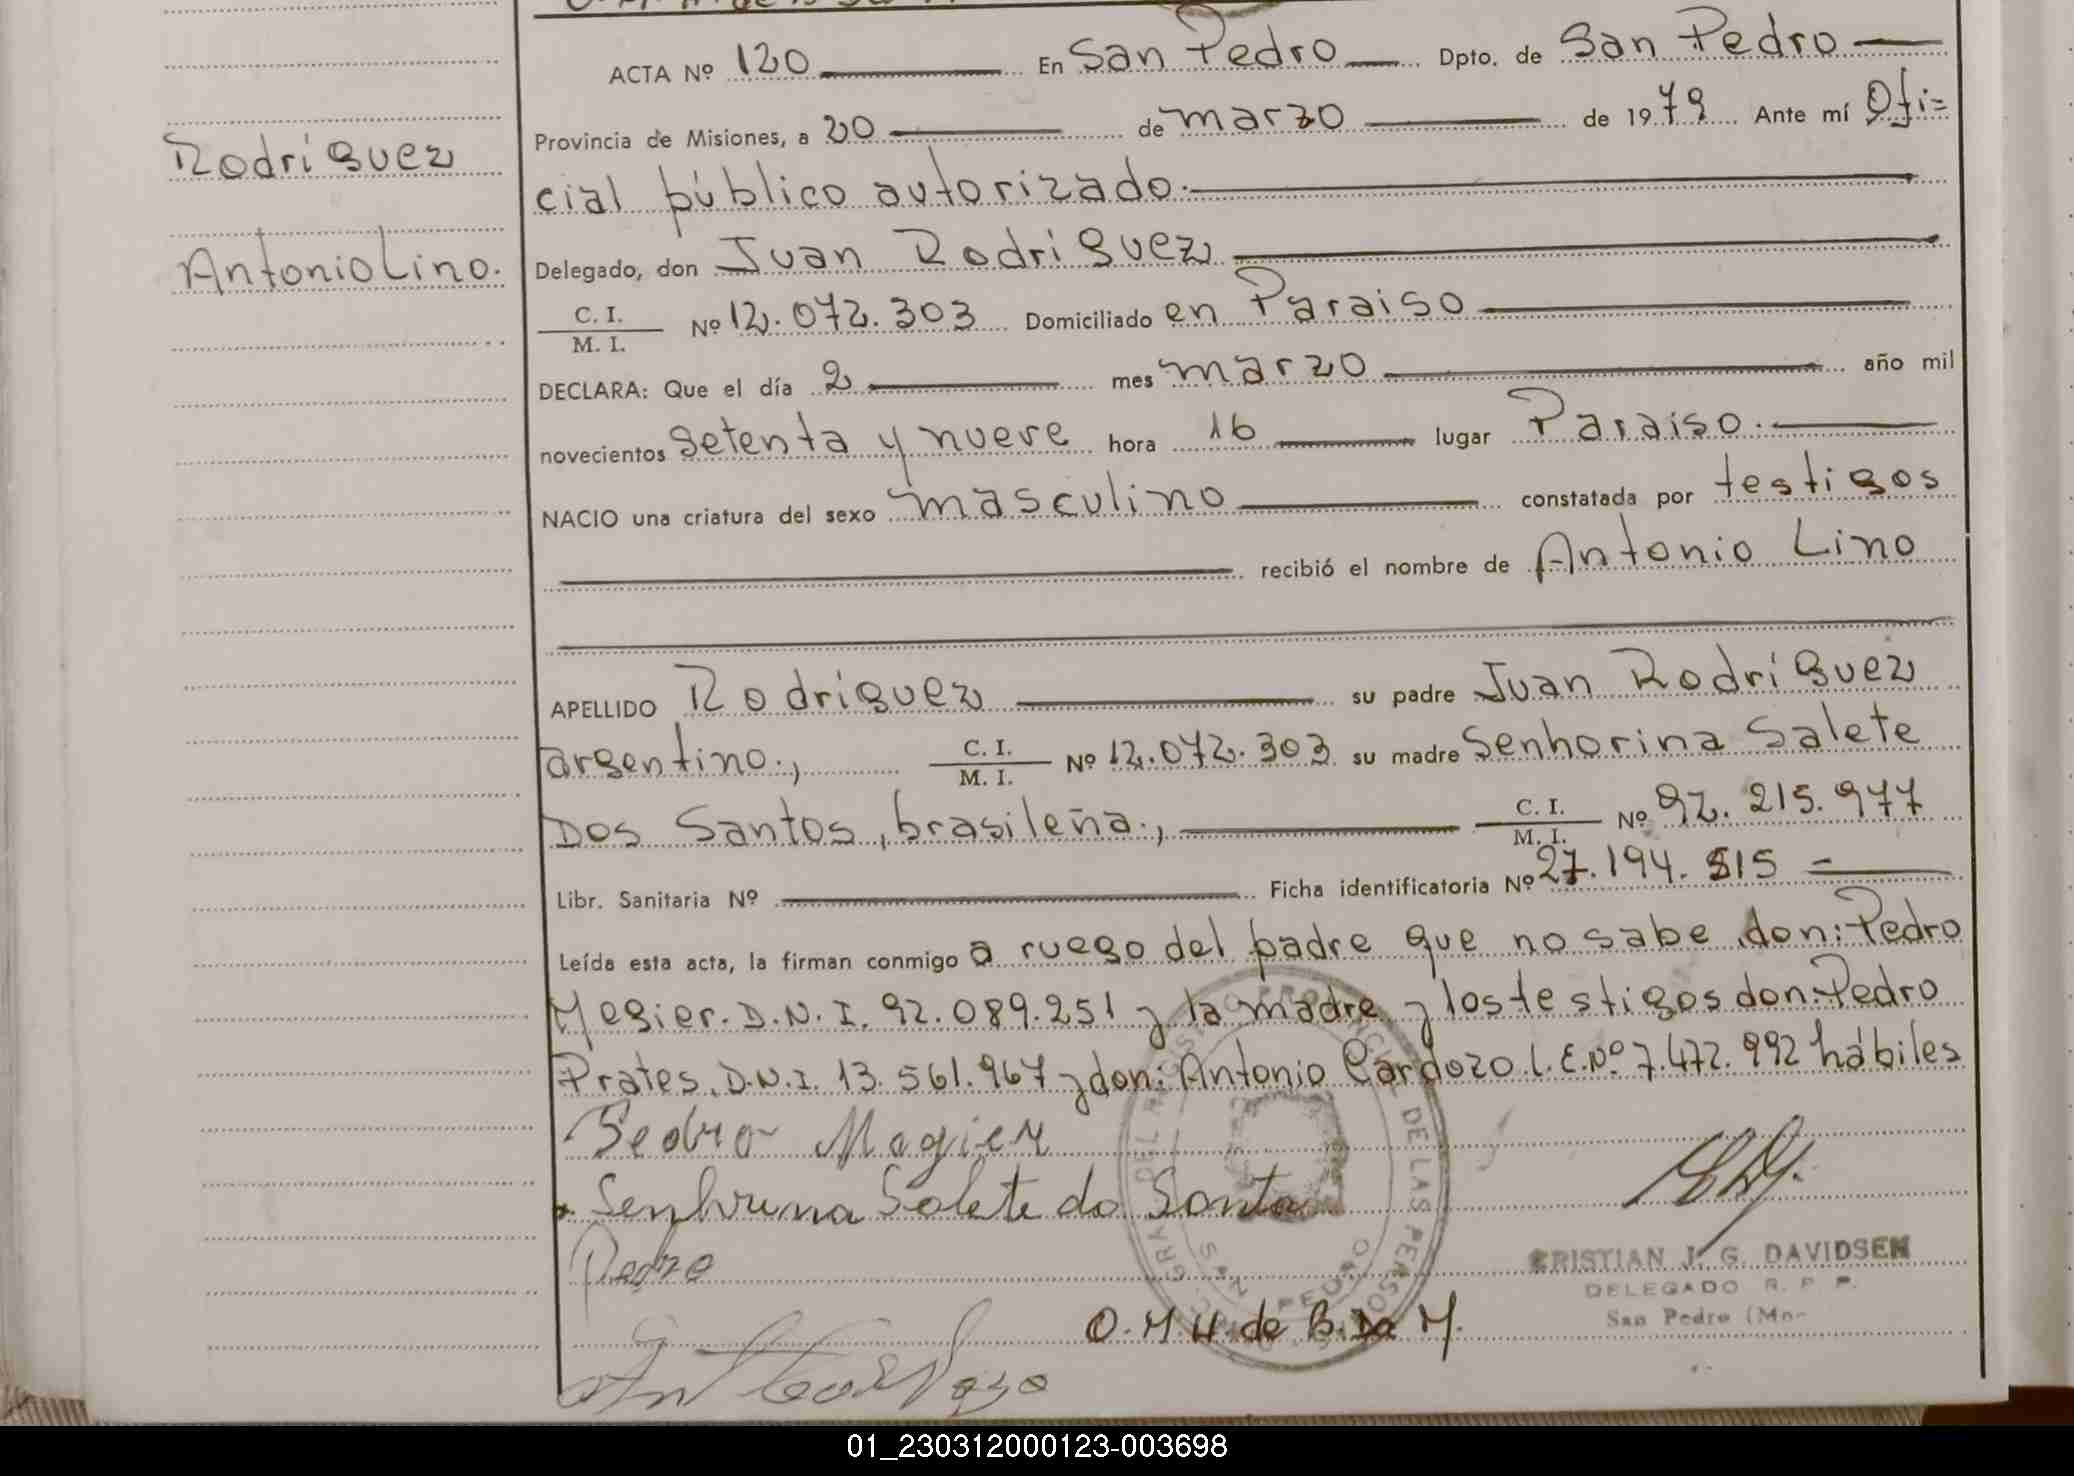 ACTA Nº 120 En San Pedro Dpto. de San Pedro
Provincia de Misiones, a 20 de marzo de 1979 Ante mí Ofi=
Rodriguez
cial público autorizado.
Antonio Lino.
Delegado, don Juan Rodriguez
C. I.
M. I. Nº 12.072.303 Domiciliado en Paraiso
DECLARA: Que el día 2 mes marzo año mil
novecientos setenta y nueve hora 16 lugar Paraiso.
NACIO una criatura del sexo masculino constatada por testigos
recibió el nombre de Antonio Lino
APELLIDO Rodriguez su padre Juan Rodriguez
argentino., C. I. M. I. Nº 12.072.303 su madre Senhorina Salete
Dos Santos, brasileña., C. I. M. I. Nº 92.215.977
Libr. Sanitaria Nº Ficha identificatoria Nº 27.194.515 =
Leída esta acta, la firman conmigo a ruego del padre que no sabe don: Pedro
Megier. D.N.I. 92.089.251 y la madre y los testigos don: Pedro
Prates. D.N.I. 13.561.967 y don: Antonio Cardozo. L.E.Nº 7.472.992 hábiles
Pedro Magier
Senhurina Solete do Santos
Pedro
CRISTIAN J. G. DAVIDSEN
DELEGADO R. P. P.
San Pedro (Mn-
O.M.H. de B. Da M.
SAN PEDRO
01_230312000123-003698